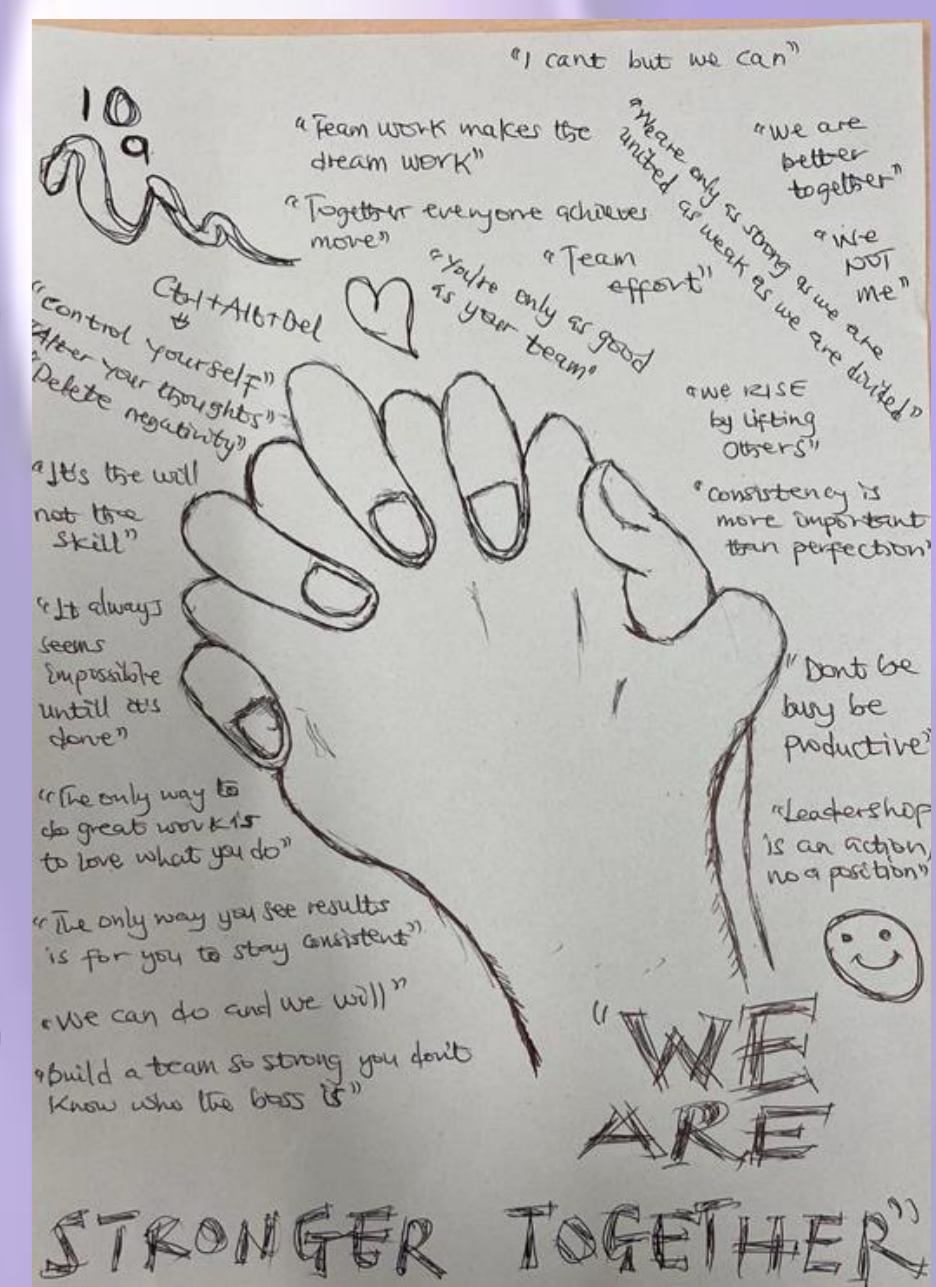 "I cant but we can"
10
a
"Team work makes the
dream work"
"Together everyone achieves
more"
"We are only as strong as we are
united as weak as we are divided"
"we are
better
together"
"we
NOT
me"
"Team
effort"
"You're only as good
as your team"
Ctrl+Alt+Del
"Control yourself"
"Alter your thoughts"
"Delete negativity"
"we RISE
by lifting
Others"
"It's the will
not the
skill"
"consistency is
more important
than perfection"
"It always
seems
impossible
untill it's
done"
"Dont be
busy be
productive"
"The only way to
do great work is
to love what you do"
"Leadership
is an action,
no a position"
"The only way you see results
is for you to stay consistent"
"we can do and we will"
"build a team so strong you don't
know who the boss is"
"WE
ARE
STRONGER TOGETHER"